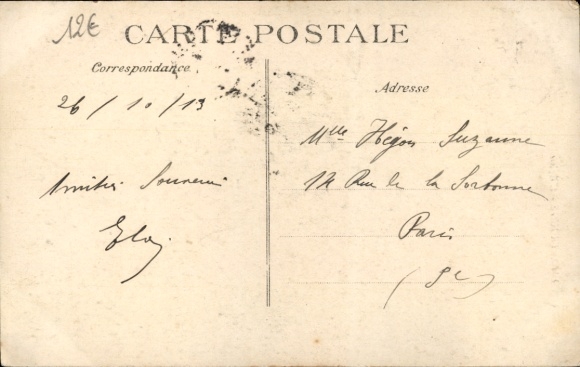 12€
CARTE POSTALE
Correspondance
Adresse
26 / 10 / 13
Amitiés Souvenir
Eloy
Mlle Suzanne
14 Rue de la Sorbonne
Paris
(5e)